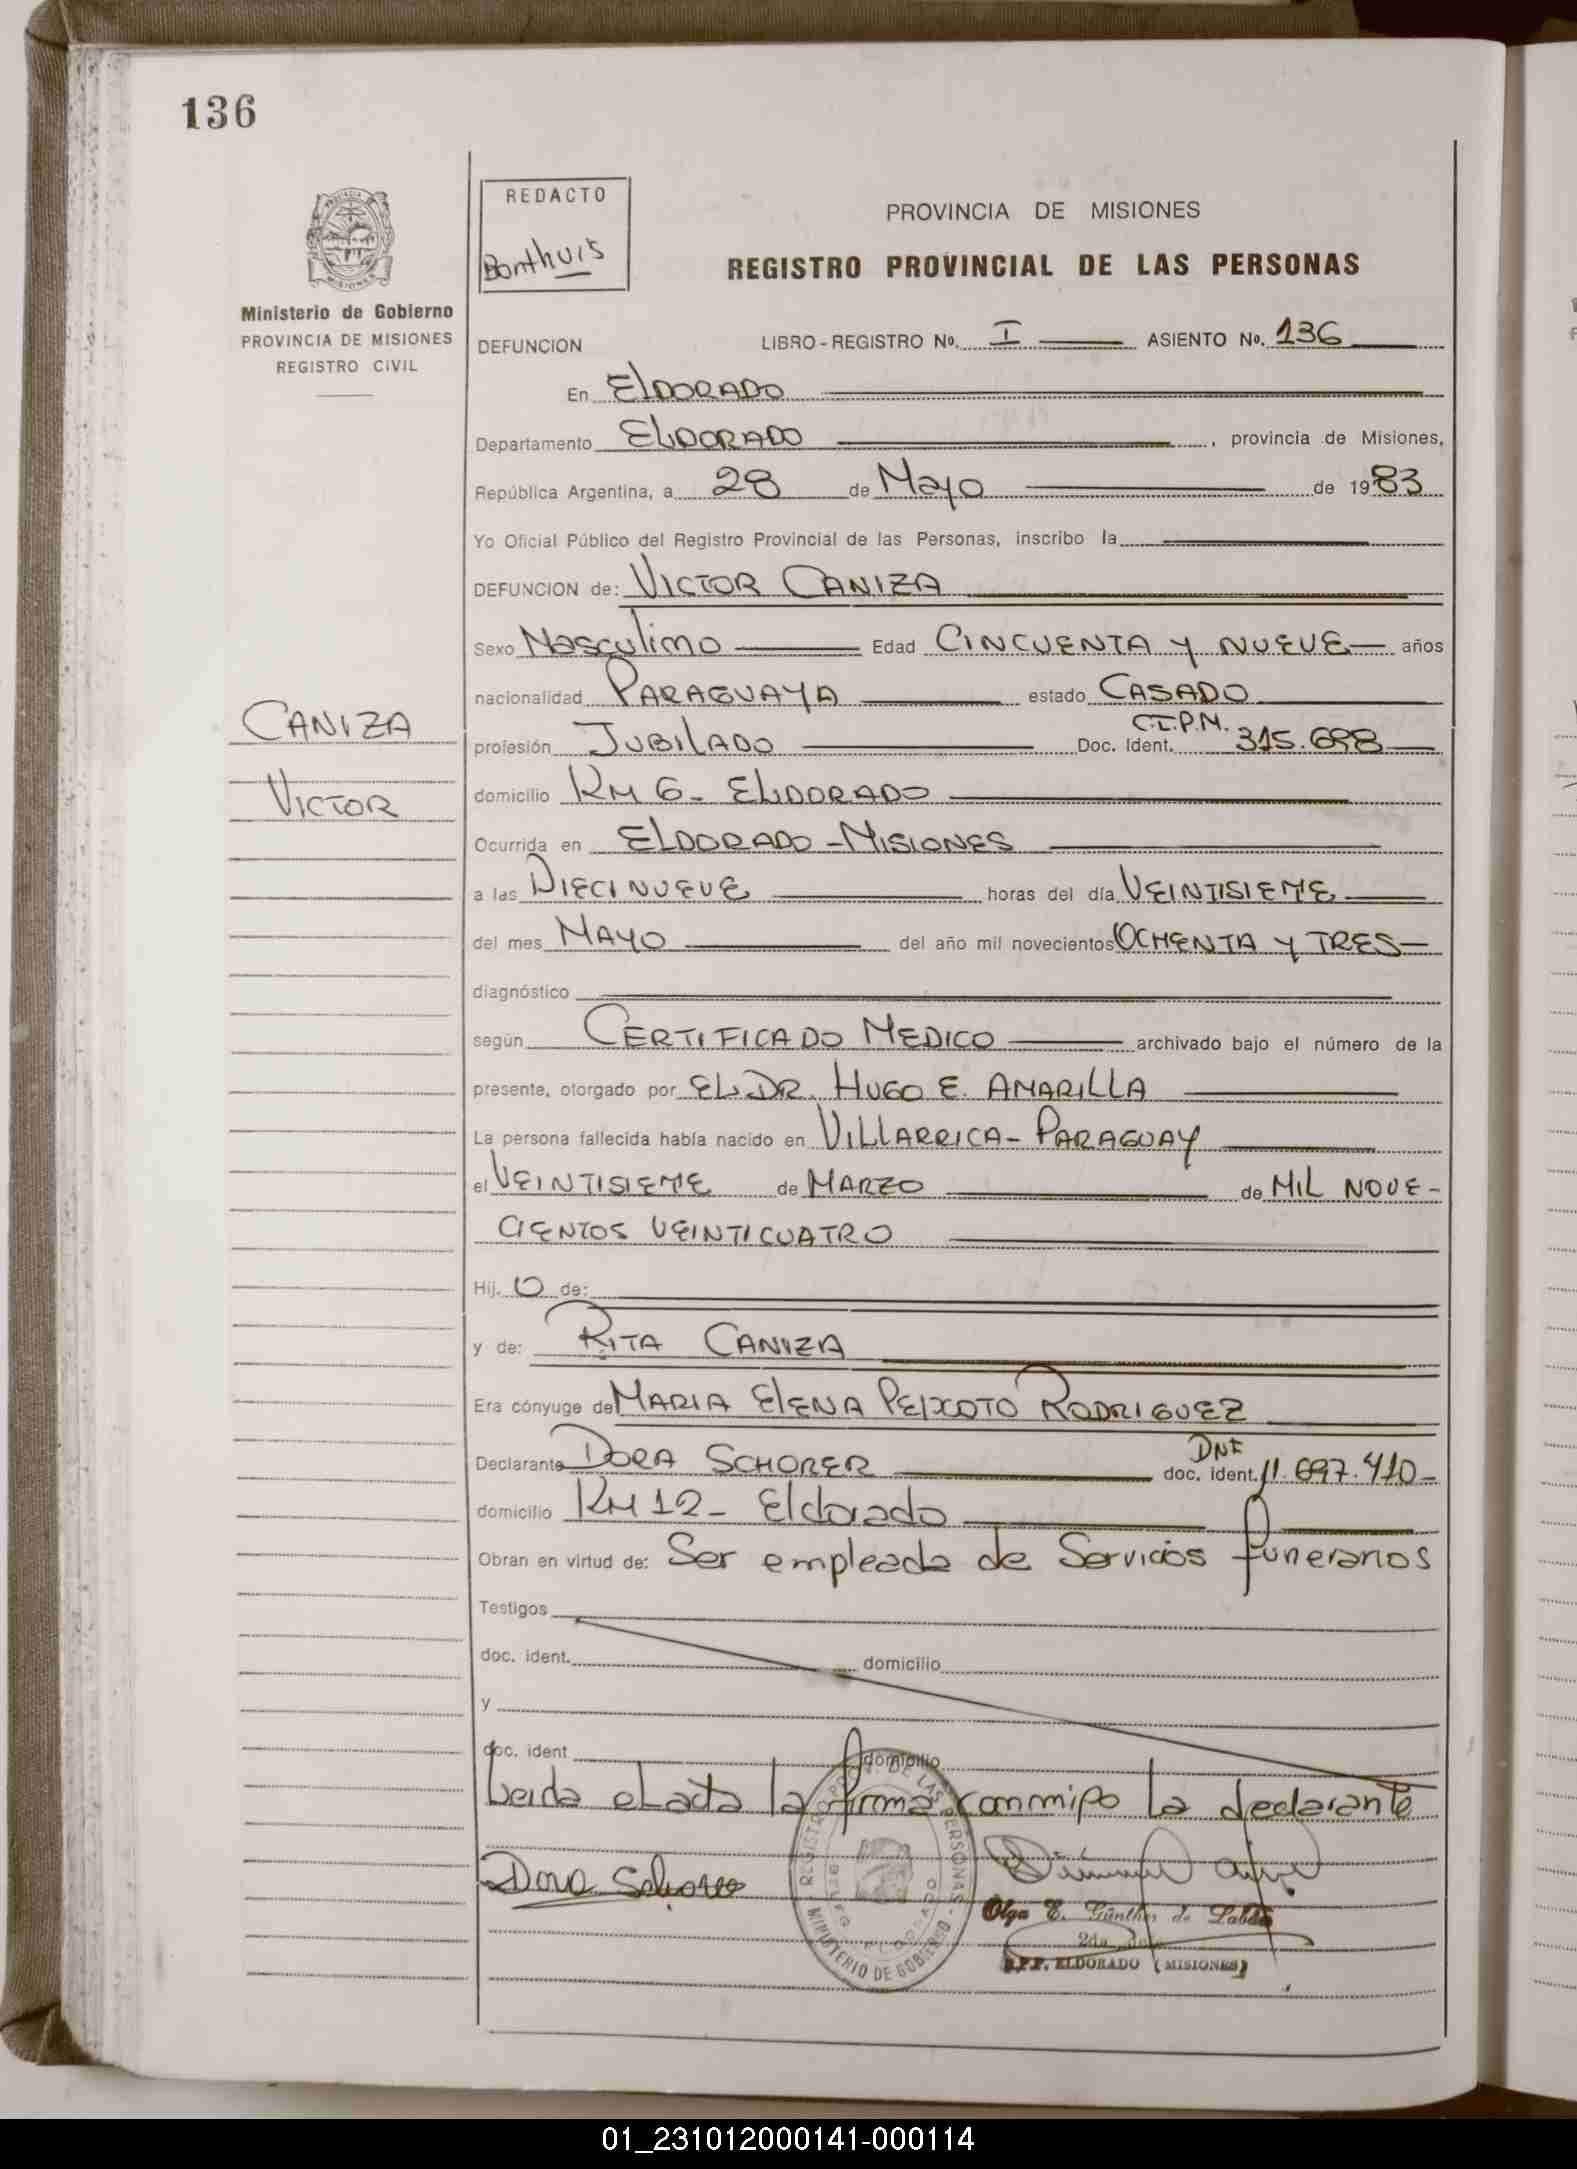 136
REDACTO
Bonthuis
PROVINCIA DE MISIONES
REGISTRO PROVINCIAL DE LAS PERSONAS
Ministerio de Gobierno
PROVINCIA DE MISIONES
REGISTRO CIVIL
DEFUNCION LIBRO - REGISTRO No. I ASIENTO No. 136
En ELDORADO
Departamento ELDORADO, provincia de Misiones,
República Argentina, a 28 de Mayo de 1983
Yo Oficial Público del Registro Provincial de las Personas, inscribo la
DEFUNCION de: VICTOR CANIZA
Sexo Masculino Edad CINCUENTA Y NUEVE años
nacionalidad PARAGUAYA estado CASADO
CANIZA
VICTOR
profesión JUBILADO Doc. Ident. C.I.P.M. 315.698
domicilio KM 6 - ELDORADO
Ocurrida en ELDORADO - MISIONES
a las DIECINUEVE horas del día VEINTISIETE
del mes MAYO del año mil novecientos OCHENTA Y TRES
diagnóstico
según CERTIFICADO MEDICO archivado bajo el número de la
presente, otorgado por EL DR. HUGO E. AMARILLA
La persona fallecida había nacido en VILLARRICA - PARAGUAY
el VEINTISIETE de MARZO de MIL NOVE-
CIENTOS VEINTICUATRO
Hij. O de:
y de: RITA CANIZA
Era cónyuge de MARIA ELENA PEIXOTO RODRIGUEZ
Declarante DORA SCHORER doc. ident. DNI 11.697.410
domicilio KM 12 - Eldorado
Obran en virtud de: Ser empleada de Servicios funerarios
Testigos
doc. ident. domicilio
y
doc. ident domicilio
Leida el acta la firma conmigo la declarante
Dora Schorer
REGISTRO PROV. DE LAS PERSONAS
MINISTERIO DE GOBIERNO
ELDORADO
Olga E. Günther de
R.P.P. ELDORADO (MISIONES)
01_231012000141-000114